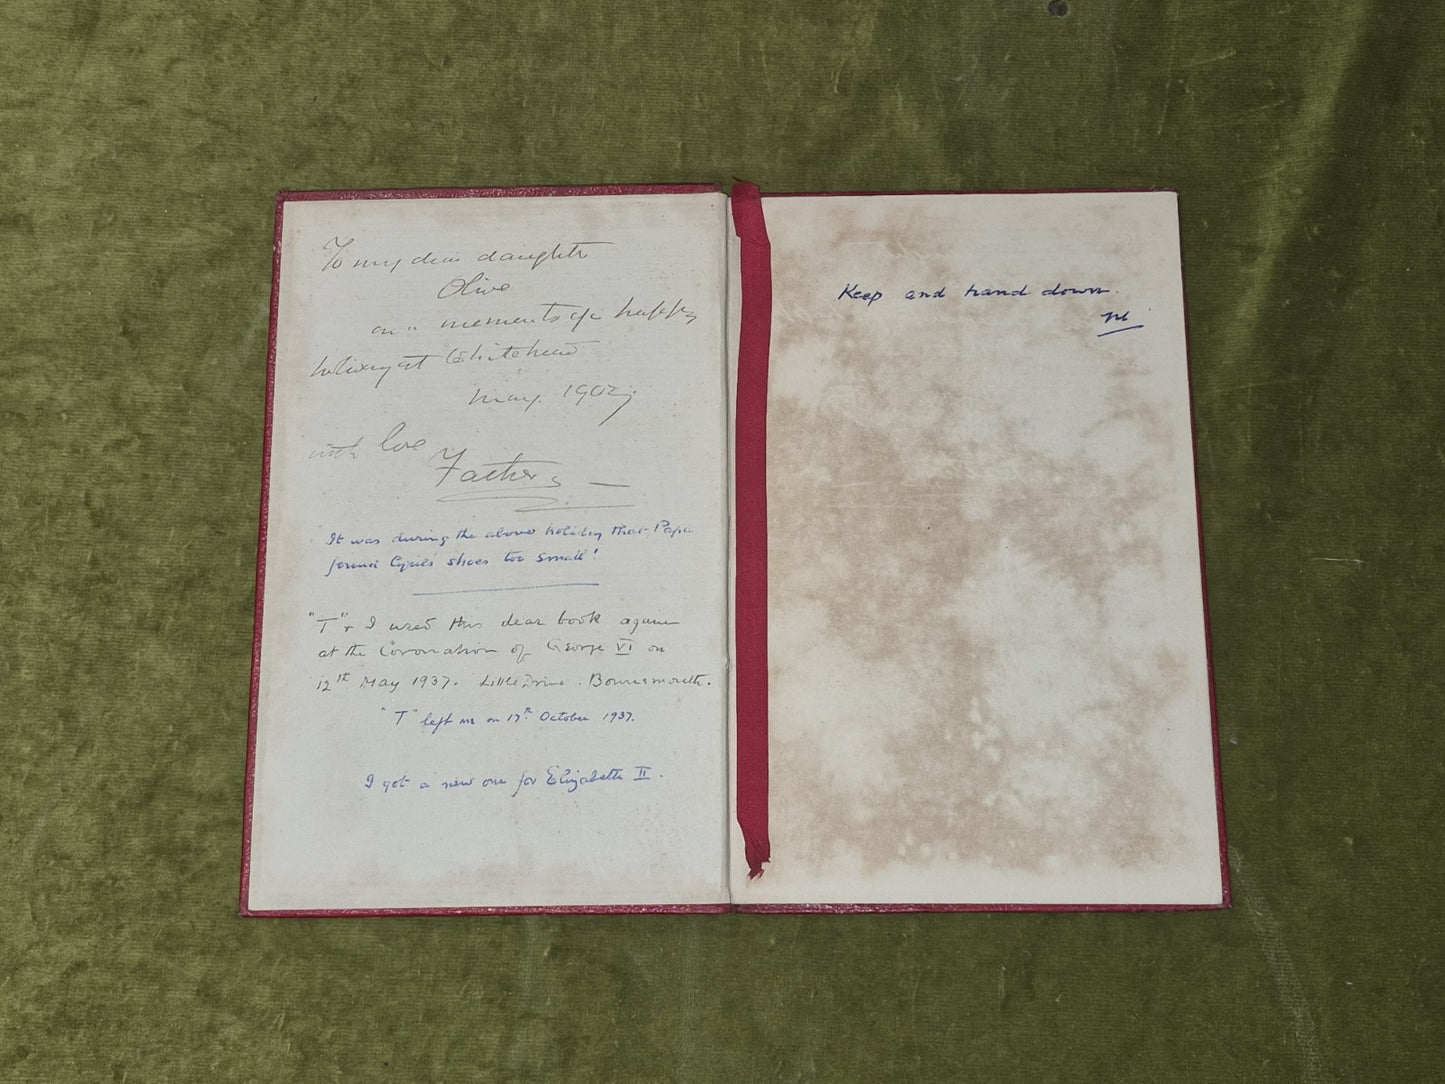 To my dear daughter
Olive
on momento of a happy
holiday at Whitehead
May. 1902
with love
Father
It was during the above holiday that Papa
found Cyril's shoes too small!
"T" + I used this dear book again
at the Coronation of George VI on
12th May 1937. Little Drive. Bournemouth.
"T" left me on 17th October 1937.
I got a new one for Elizabeth II.
Keep and hand down.